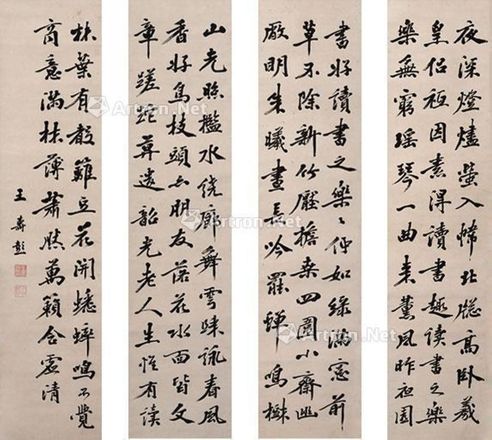 夜深燈燼螢入幃北牕高卧羲
皇侶祗因素得讀書趣读書之樂
樂無窮瑶琴一曲来薰风昨夜園
書好讀書之樂〻何如綠滿窓前
草不除新竹壓檐桑四圍小齋幽
敞明朱曦晝長吟罷蟬鳴樹
山光照檻水绕廊舞雩歸詠春風
香好鳥枝頭亦朋友落花水面皆文
章蹉跎莫遣韶光老人生惟有读
林葉有聲籬豆花開蟋蟀鳴不覺
商意滿林薄蕭然萬籟含虚清
王壽彭
Artron.Net